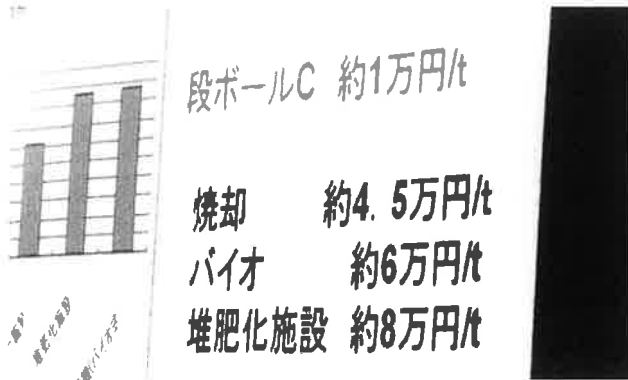 段ボールC 約1万円/t
焼却 約4. 5万円/t
バイオ 約6万円/t
堆肥化施設 約8万円/t
堆肥化施設